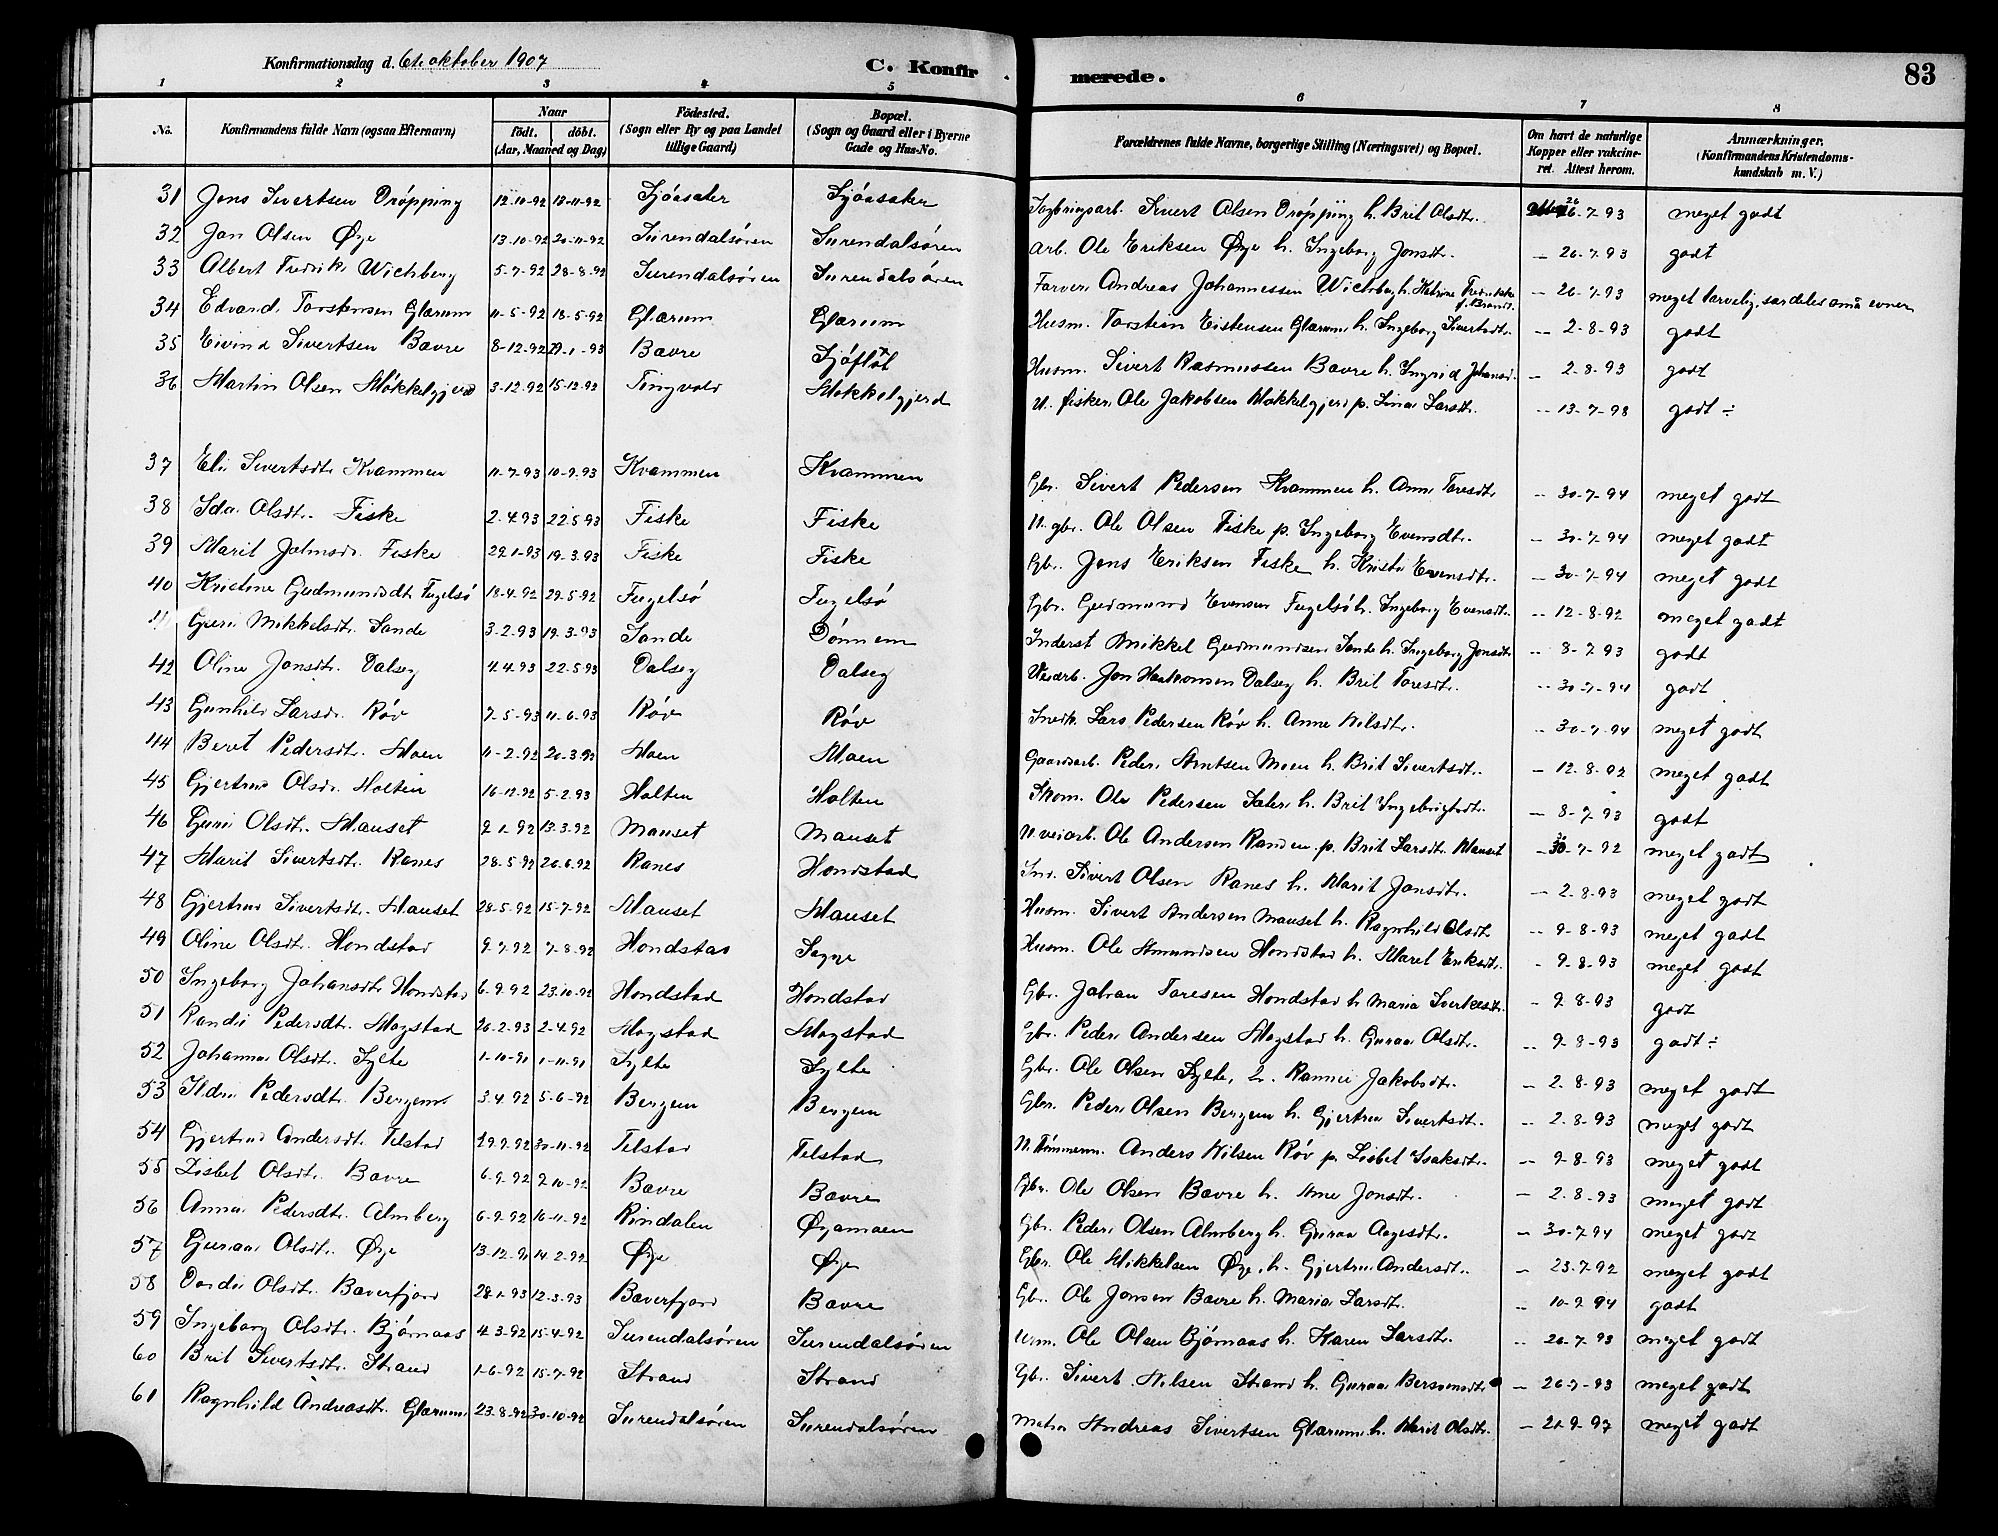 Konfirmationsdag d. 6te oktober 1907
C. Konfirmerede.
83
1 2 3 4 5 6 7 8
No. Konfirmandens fulde Navn (ogsaa Efternavn) Naar födt. döbt. (Aar, Maaned og Dag) Födested. (Sogn eller By og paa Landet tillige Gaard) Bopæl. (Sogn og Gaard eller i Byerne Gade og Hus-No. Forældrenes fulde Navne, borgerlige Stilling (Næringsvei) og Bopæl. Om havt de naturlige Kopper eller vakcineret. Attest herom. Anmærkninger. (Konfirmandens Kristendomskundskab m. V.)
31 Jens Sivertsen Dröpping 12-10-92 Sjöasæter Sjöasæter Sivert Olsen Dröpping h. Brit Olsdtr. 26-7-93 meget godt
32 Jon Olsen Øye 13-10-92 20-11-92 Surendalsören Surendalsören Arb. Ole Eriksen Øye h. Ingeborg Jonsdtr. - 26-7-93 godt
33 Albert Fredrik Wichberg 5-7-92 28-8-92 Surendalsören Surendalsören Farver Andreas Johannessen Wichberg h. Fredrikke f. Brandt - 26-7-93 meget tarvelig, særdeles små evner
34 Edvard Torstensen Glærum 11-5-92 18-5-92 Glærum Glærum Husm. Torstein Eistensen Glærum h. Ingeborg Sivertsdtr. - 2-8-93 godt
35 Eivind Sivertsen Bævre 8-12-92 29-1-93 Bævre Sjöflot Husm. Sivert Rasmussen Bævre h. Ingrid Johansd. - 2-8-93 godt
36 Martin Olsen Møkkelgjerd 3-12-92 15-12-92 Tingvold Møkkelgjerd U. fisker Ole Jakobsen Møkkelgjerd p. Lina Larsdtr. - 13-7-98 godt ÷
37 Eli Sivertsdtr. Kvammen 11-7-93 10-9-93 Kvammen Kvammen Gbr. Sivert Pedersen Kvammen h. Anne Toresdtr. - 30-7-94 meget godt
38 Ida Olsdtr. Fiske 2-4-93 22-5-93 Fiske Fiske U. gbr. Ole Olsen Fiske p. Ingeborg Evensdtr. - 30-7-94 meget godt
39 Marit Jensdr. Fiske 29-1-93 19-3-93 Fiske Fiske Gbr. Jens Eriksen Fiske h. Kristi Evensdtr. - 30-7-94 meget godt
40 Kristine Gudmundsdt. Fugelsö 18-4-92 29-5-92 Fugelsö Fugelsö Gbr. Gudmund Evensen Fugelsö h. Ingeborg Evensdt. - 12-8-92 meget godt
41 Guri Mikkelsdtr. Sande 3-2-93 19-3-93 Sande Dönnem Inderst Mikkel Gudmundsen Sande h. Ingeborg Jonsdtr. - 8-7-93 godt
42 Oline Jonsdtr. Dalseg 4-4-93 22-5-93 Dalseg Dalseg Veiarb. Jon Haakonsen Dalseg h. Brit Toresdtr. - 30-7-94 godt
43 Gunhild Larsdr. Röv 7-5-93 11-6-93 Röv Röv Snedk. Lars Pedersen Röv h. Anne Nilsdtr. - 30-7-94 meget godt
44 Beret Pedersdtr. Moen 11-2-92 20-3-92 Moen Moen Gaardarb. Peder Arntsen Moen h. Brit Sivertsdtr. - 12-8-92 meget godt
45 Gjertrud Olsdr. Holten 16-12-92 5-2-93 Holten Holten Skom. Ole Pedersen Sæter h. Brit Ingebrigtsdtr. - 8-7-93 godt
46 Guri Olsdtr. Mauset 9-1-92 13-3-92 Mauset Mauset U. veiarb. Ole Andersen Randen p. Brit Larsdtr. Mauset - 30-7-92 meget godt
47 Marit Sivertsdtr. Ranes 28-5-92 26-6-92 Ranes Hondstad Ind. Sivert Olsen Ranes h. Marit Jonsdtr. - 2-8-93 meget godt
48 Gjertrud Sivertsdtr. Mauset 28-5-92 15-7-92 Mauset Mauset Husm. Sivert Andersen Mauset h. Ragnhild Olsdt. - 9-8-93 meget godt
49 Oline Olsdtr. Hondstad 9-7-92 7-8-92 Hondstad Sogge Husm. Ole Amundsen Hondstad h. Maret Eriksdtr. - 9-8-93 meget godt
50 Ingeborg Johansdtr. Hondstad 6-9-92 23-10-92 Hondstad Hondstad Gbr. Johan Toresen Hondstad h. Maria Sverkesdtr. - 9-8-93 godt
51 Randi Pedersdtr. Mogstad 26-2-93 2-4-92 Mogstad Mogstad Gbr. Peder Andersen Mogstad h. Guraa Olsdtr. - 9-8-93 godt ÷
52 Johanna Olsdtr. Sylte 1-10-91 1-11-91 Sylte Sylte Gbr. Ole Olsen Sylte, h. Rannei Jakobsdtr. - 2-8-93 meget godt
53 Ildri Pedersdtr. Bergem 3-4-92 5-6-92 Bergem Bergem Gbr. Peder Olsen Bergem h. Gjertrud Sivertsdtr. - 2-8-93 meget godt
54 Gjertrud Andersdtr. Telstad 29-9-92 30-11-92 Telstad Telstad U. Tömmerm. Anders Nilsen Röv p. Lisbet Isaksdtr. - 9-8-93 meget godt
55 Lisbet Olsdtr. Bævre 6-9-92 2-10-92 Bævre Bævre Gbr. Ole Olsen Bævre h. Ane Jonsdtr. - 2-8-93 meget godt
56 Anna Pedersdtr. Almberg 6-9-92 16-11-92 Rindalen Øyamoen Gbr. Peder Olsen Almberg h. Guraa Aagesdtr. - 30-7-94 meget godt
57 Guraa Olsdtr. Øye 13-12-91 14-2-92 Øye Øye Gbr. Ole Mikkelsen Øye, h. Gjertrud Andersdt. - 23-7-92 meget godt
58 Dordi Olsdtr. Bæverfjord 28-1-93 12-3-93 Bæverfjord Bævre Gbr. Ole Jonsen Bævre h. Maria Larsdtr. - 10-9-94 godt
59 Ingeborg Olsdtr. Bjørnaas 4-3-92 15-4-92 Surendalsören Surendalsören Ole Olsen Bjørnaas h. Karen Larsdtr. - 26-7-93 meget godt
60 Brit Sivertsdtr. Strand 1-6-92 15-7-92 Strand Strand Gbr. Sivert Nilsen Strand h. Guraa Bersvensdtr. - 26-7-93 meget godt
61 Ragnhild Andreasdt. Glærum 23-8-92 30-10-92 Surendalsören Surendalsören Matros Andreas Sivertsen Glærum h. Marit Olsdtr. - 21-9-97 meget godt